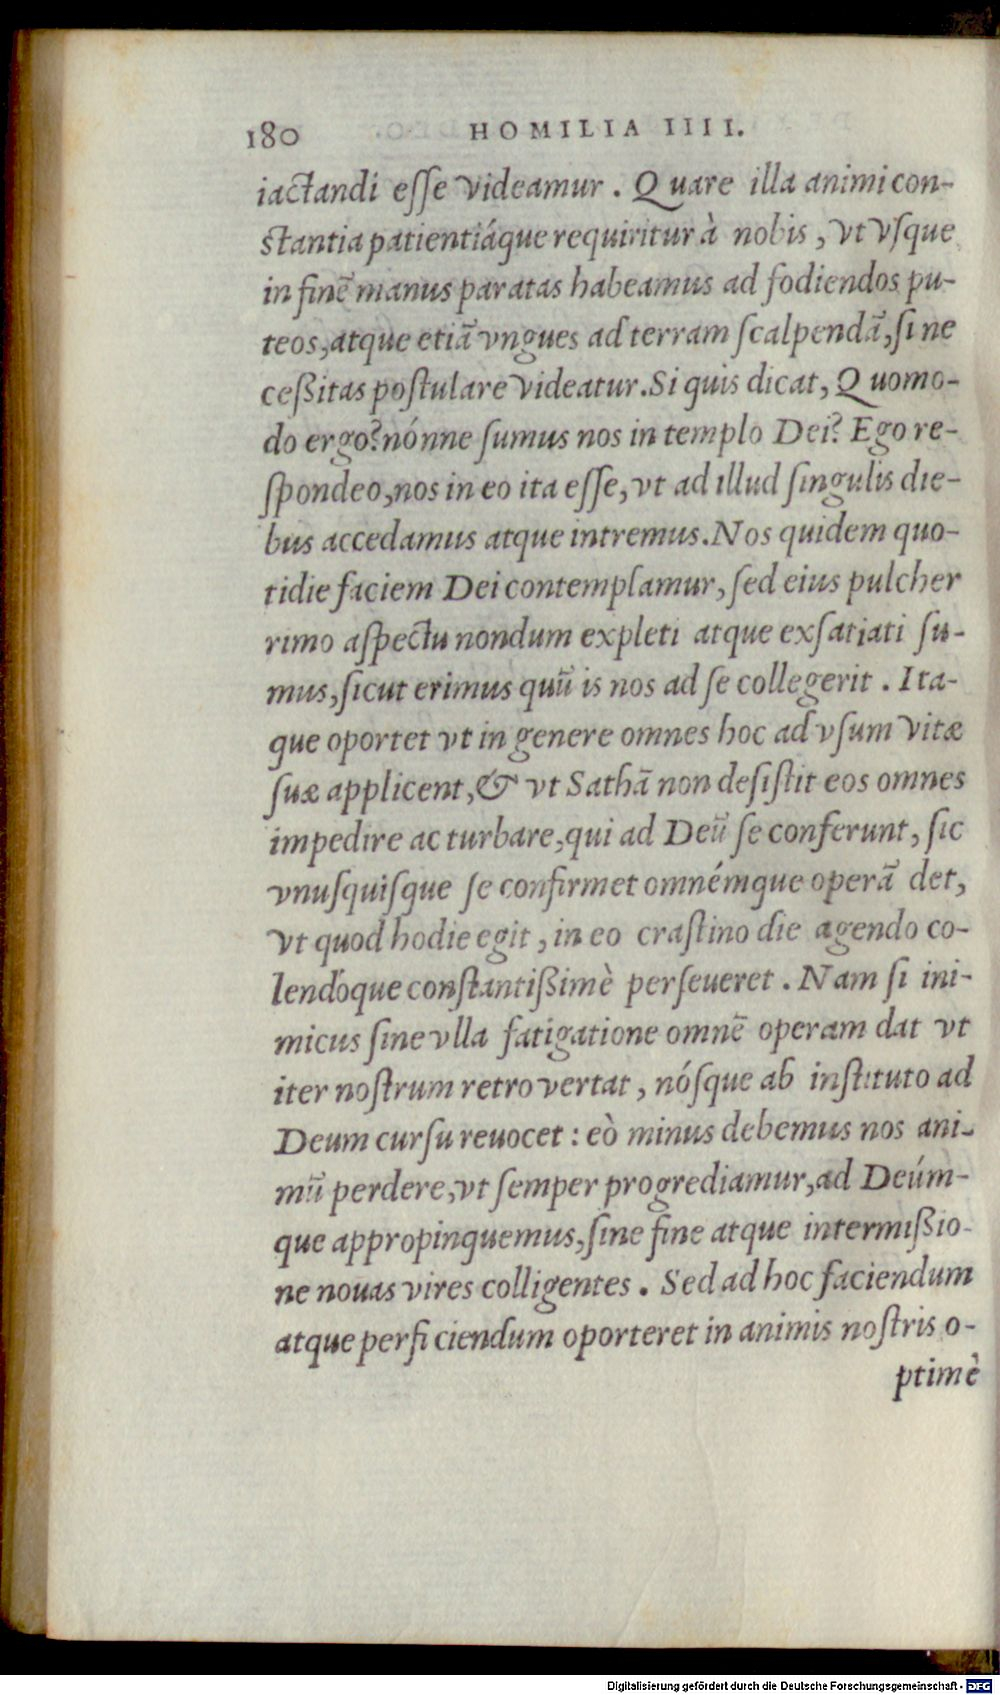 180 HOMILIA IIII.
iactandi eſſe videamur. Quare illa animi con-
ſtantia patientiáque requiritur à nobis, vt vſque
in finẽ manus paratas habeamus ad fodiendos pu-
teos, atque etiã vngues ad terram ſcalpendã, ſi ne
ceßitas poſtulare videatur. Si quis dicat, Quomo-
do ergo? nónne ſumus nos in templo Dei? Ego re-
ſpondeo, nos in eo ita eſſe, vt ad illud ſingulis die-
bus accedamus atque intremus. Nos quidem quo-
tidie faciem Dei contemplamur, ſed eius pulcher
rimo aſpectu nondum expleti atque exſatiati ſu-
mus, ſicut erimus quũ is nos ad ſe collegerit. Ita-
que oportet vt in genere omnes hoc ad vſum vitæ
ſuæ applicent, & vt Sathã non deſiſtit eos omnes
impedire ac turbare, qui ad Deũ ſe conferunt, ſic
vnuſquiſque ſe confirmet omnémque operã det,
vt quod hodie egit, in eo craſtino die agendo co-
lendóque conſtantißimè perſeueret. Nam ſi ini-
micus ſine vlla fatigatione omnẽ operam dat vt
iter noſtrum retro vertat, nóſque ab inſtituto ad
Deum curſu reuocet: eò minus debemus nos ani-
mũ perdere, vt ſemper progrediamur, ad Deúm-
que appropinquemus, ſine fine atque intermißio-
ne nouas vires colligentes. Sed ad hoc faciendum
atque perficiendum oporteret in animis noſtris o-
ptimè
Digitalisierung gefördert durch die Deutsche Forschungsgemeinschaft - DFG